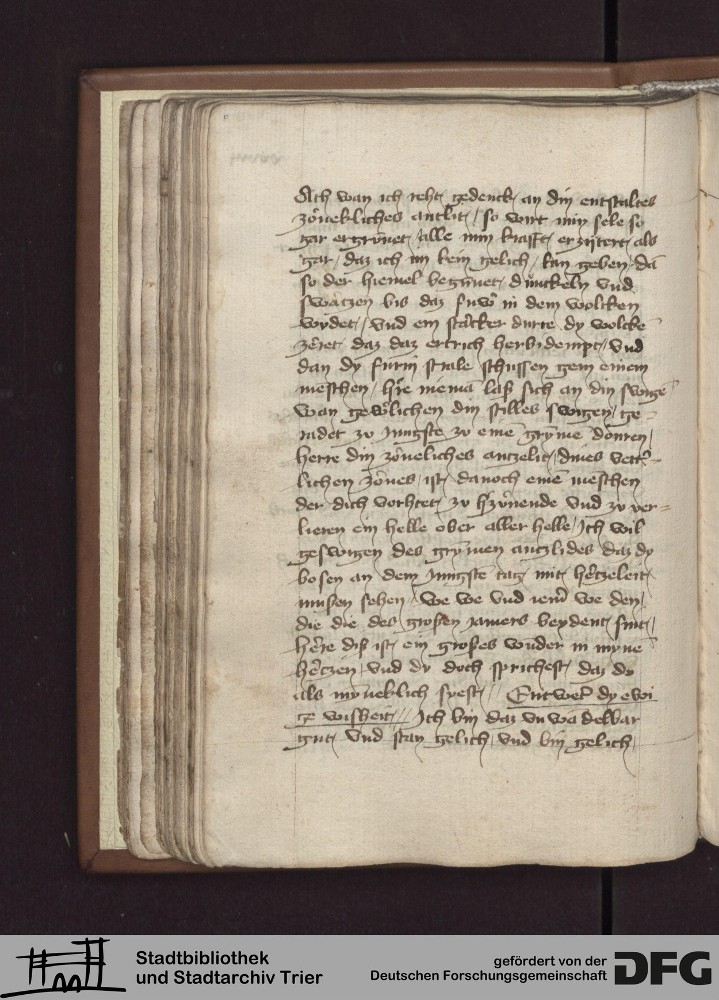 Ach wan ich reht gedenck an din entstaltes
zörnekliches antlit / so wirt min sele so
gar ergrimet / alle min krafft erzittert als
gar / daz ich im kein gelich / kan geben / da
so der hiemel begīnet / dunckeln vnd
swarczen bis daz fuwr in dem wolcken
wydet / vnd ein starcker durre dy wolcke
zeret daz daz ertrich herbidempt / vnd
dan dy furin strale schussen gem einem
meschen / h're niema laß sich an din swige
wan gewerlichen din stilles swigen / ge-
radet zv jungste zv eime gryme donren /
herre din zörneliches antzelit / dines vett'-
lichen zornes / ist danoch eime meschen
der dich vorhtet zv h'zvrnende vnd zv ver=
lieren ein helle ober aller helle / Ich wil
geswigen des grymen antzlides daz dy
bosen an dem jungste tag mit h'rczeleit
musen sehen / we we vnd iem' we den /
die die des grosen jamers beydent sint /
h're diß ist ein groses wunder in myne
h'rczen / vnd dv doch sprichest daz dv
als myneklich syest // Entwert dy ewi
ge wisheit // Ich bin daz vnwādelbar
gut / vnd stan gelich / vnd bin gelich
Stadtbibliothek
und Stadtarchiv Trier
gefördert von der
Deutschen Forschungsgemeinschaft
DFG